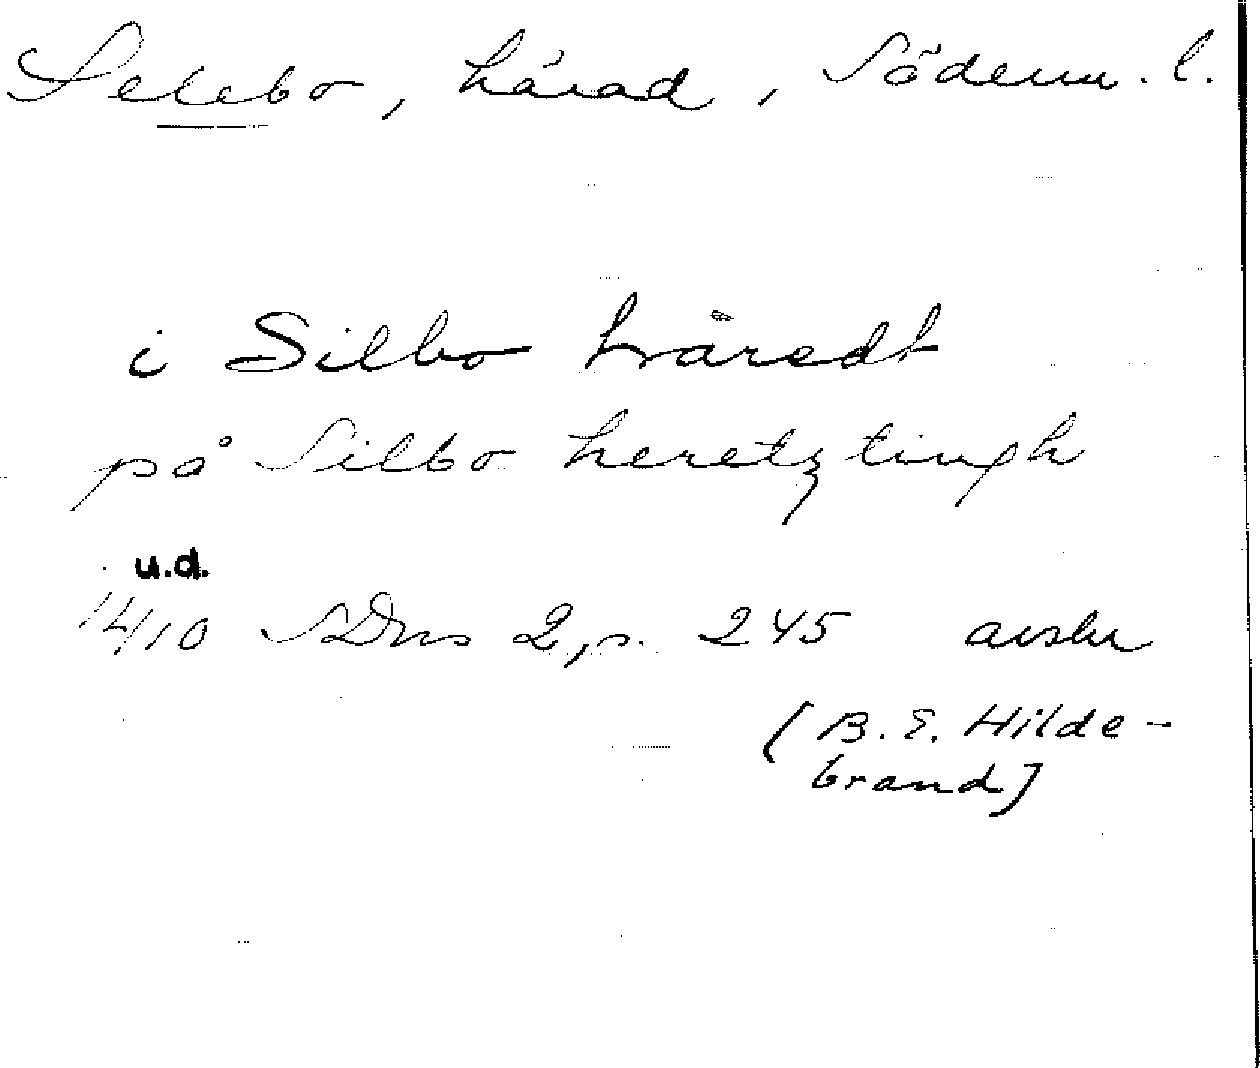 Selebo, härad, Söderm. l.
i Silbo häredt
på Silbo heretz tingh
u.d.
14/10 SDns 2, s. 245 avskr
[B. E. Hilde-
brand]